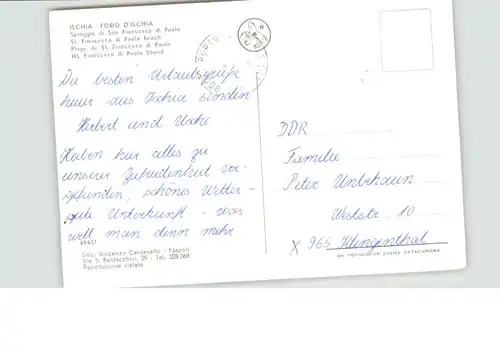 ISCHIA - FORIO D'ISCHIA
Spiaggia di San Francesco di Paola
St. Francesco di Paola beach
Plage de St. Francesco di Paola
Hl. Francesco di Paola Strand
Die besten Urlaubsgrüße
heuer aus Ischia senden
Herbert und Uschi
Haben hier alles zu
unserer Zufriedenheit vor-
gefunden, schönes Wetter -
gute Unterkunft - was
will man denn mehr
Ediz. Vincenzo Carcavallo - Napoli
Via S. Baldacchini, 29 - Tel. 328.069
Riproduzione vietata
DDR
Familie
Peter Unbehaun
Weststr. 10
X 965 Klingenthal